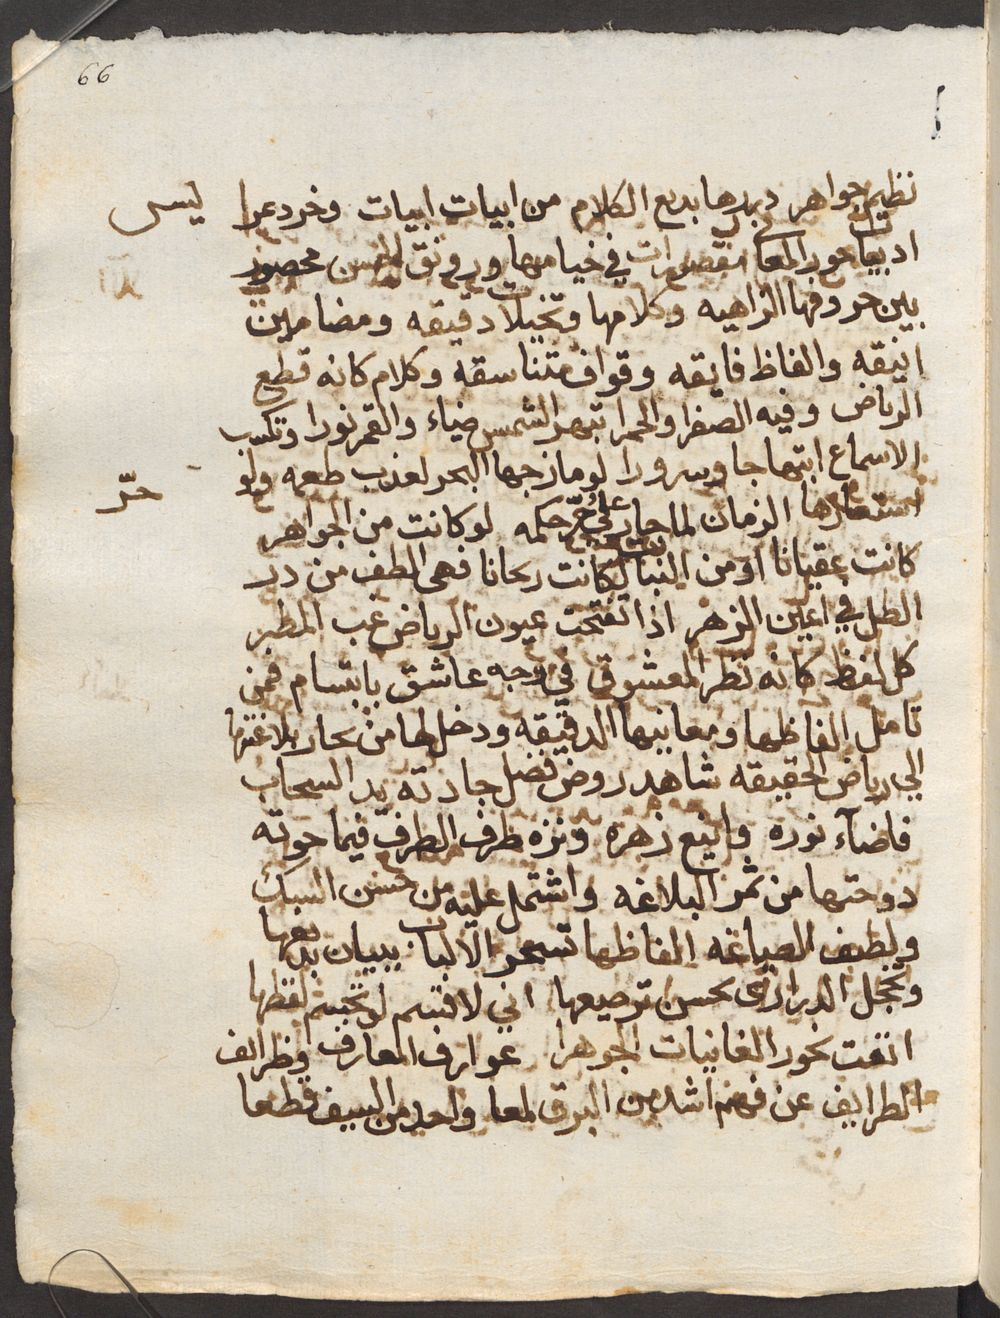 66
نظيم جواهر دبدرها بديع الكلام من ابيات ابيات وخرد عرا
ليس
ادبيات حور المعا مقصورات في خيامها ورونق الحسن محصور
بين حروفها الزاهيه وكلامها وتخيلات دقيقه ومضامين
انيقه والفاظ فايقه وقواف متناسقه وكلام كانه قطع
الرياض وفيه الصفرا والحمرا تبهر الشمس ضياء والقمر نورا وتكسب
الاسماع ابتهاجا وسرورا لو مازجها البحر لعذب طعمه ولو
حرّ
استعارها الزمان لما جار على حرّ حكمه لو كانت من الجواهر
كانت عقيانا او من النبات لكانت ريحانا فهى الطف من در
الطل في اعين الزهر اذا تفتحت عيون الرياض غب المطر
كل لفظ كانه نظر المعشوق في وجه عاشق بابتسام فمن
تامل الفاظها ومعانيها الدقيقه ودخل لها من بحار بلاغتها
الي رياض الحقيقه شاهد روض فضل جادته يد السحاب
فاضآء نوره واينع زهره ونزه طرف الطرف فيما حوته
دوحتها من ثمر البلاغه واشتمل عليه من حسن السبك
ولطيف الصياغه الفاظها تسحر الالباب ببيان بديعها
وتخجل الدرارى بحسن ترصيعها اني لاقسم لو تجسم لفظها
انفت نحور الغانيات الجوهرا عوارف المعارف وظرائف
الطرايف عن فهم اشد من البرق لمعا واحد من السيف قطعا